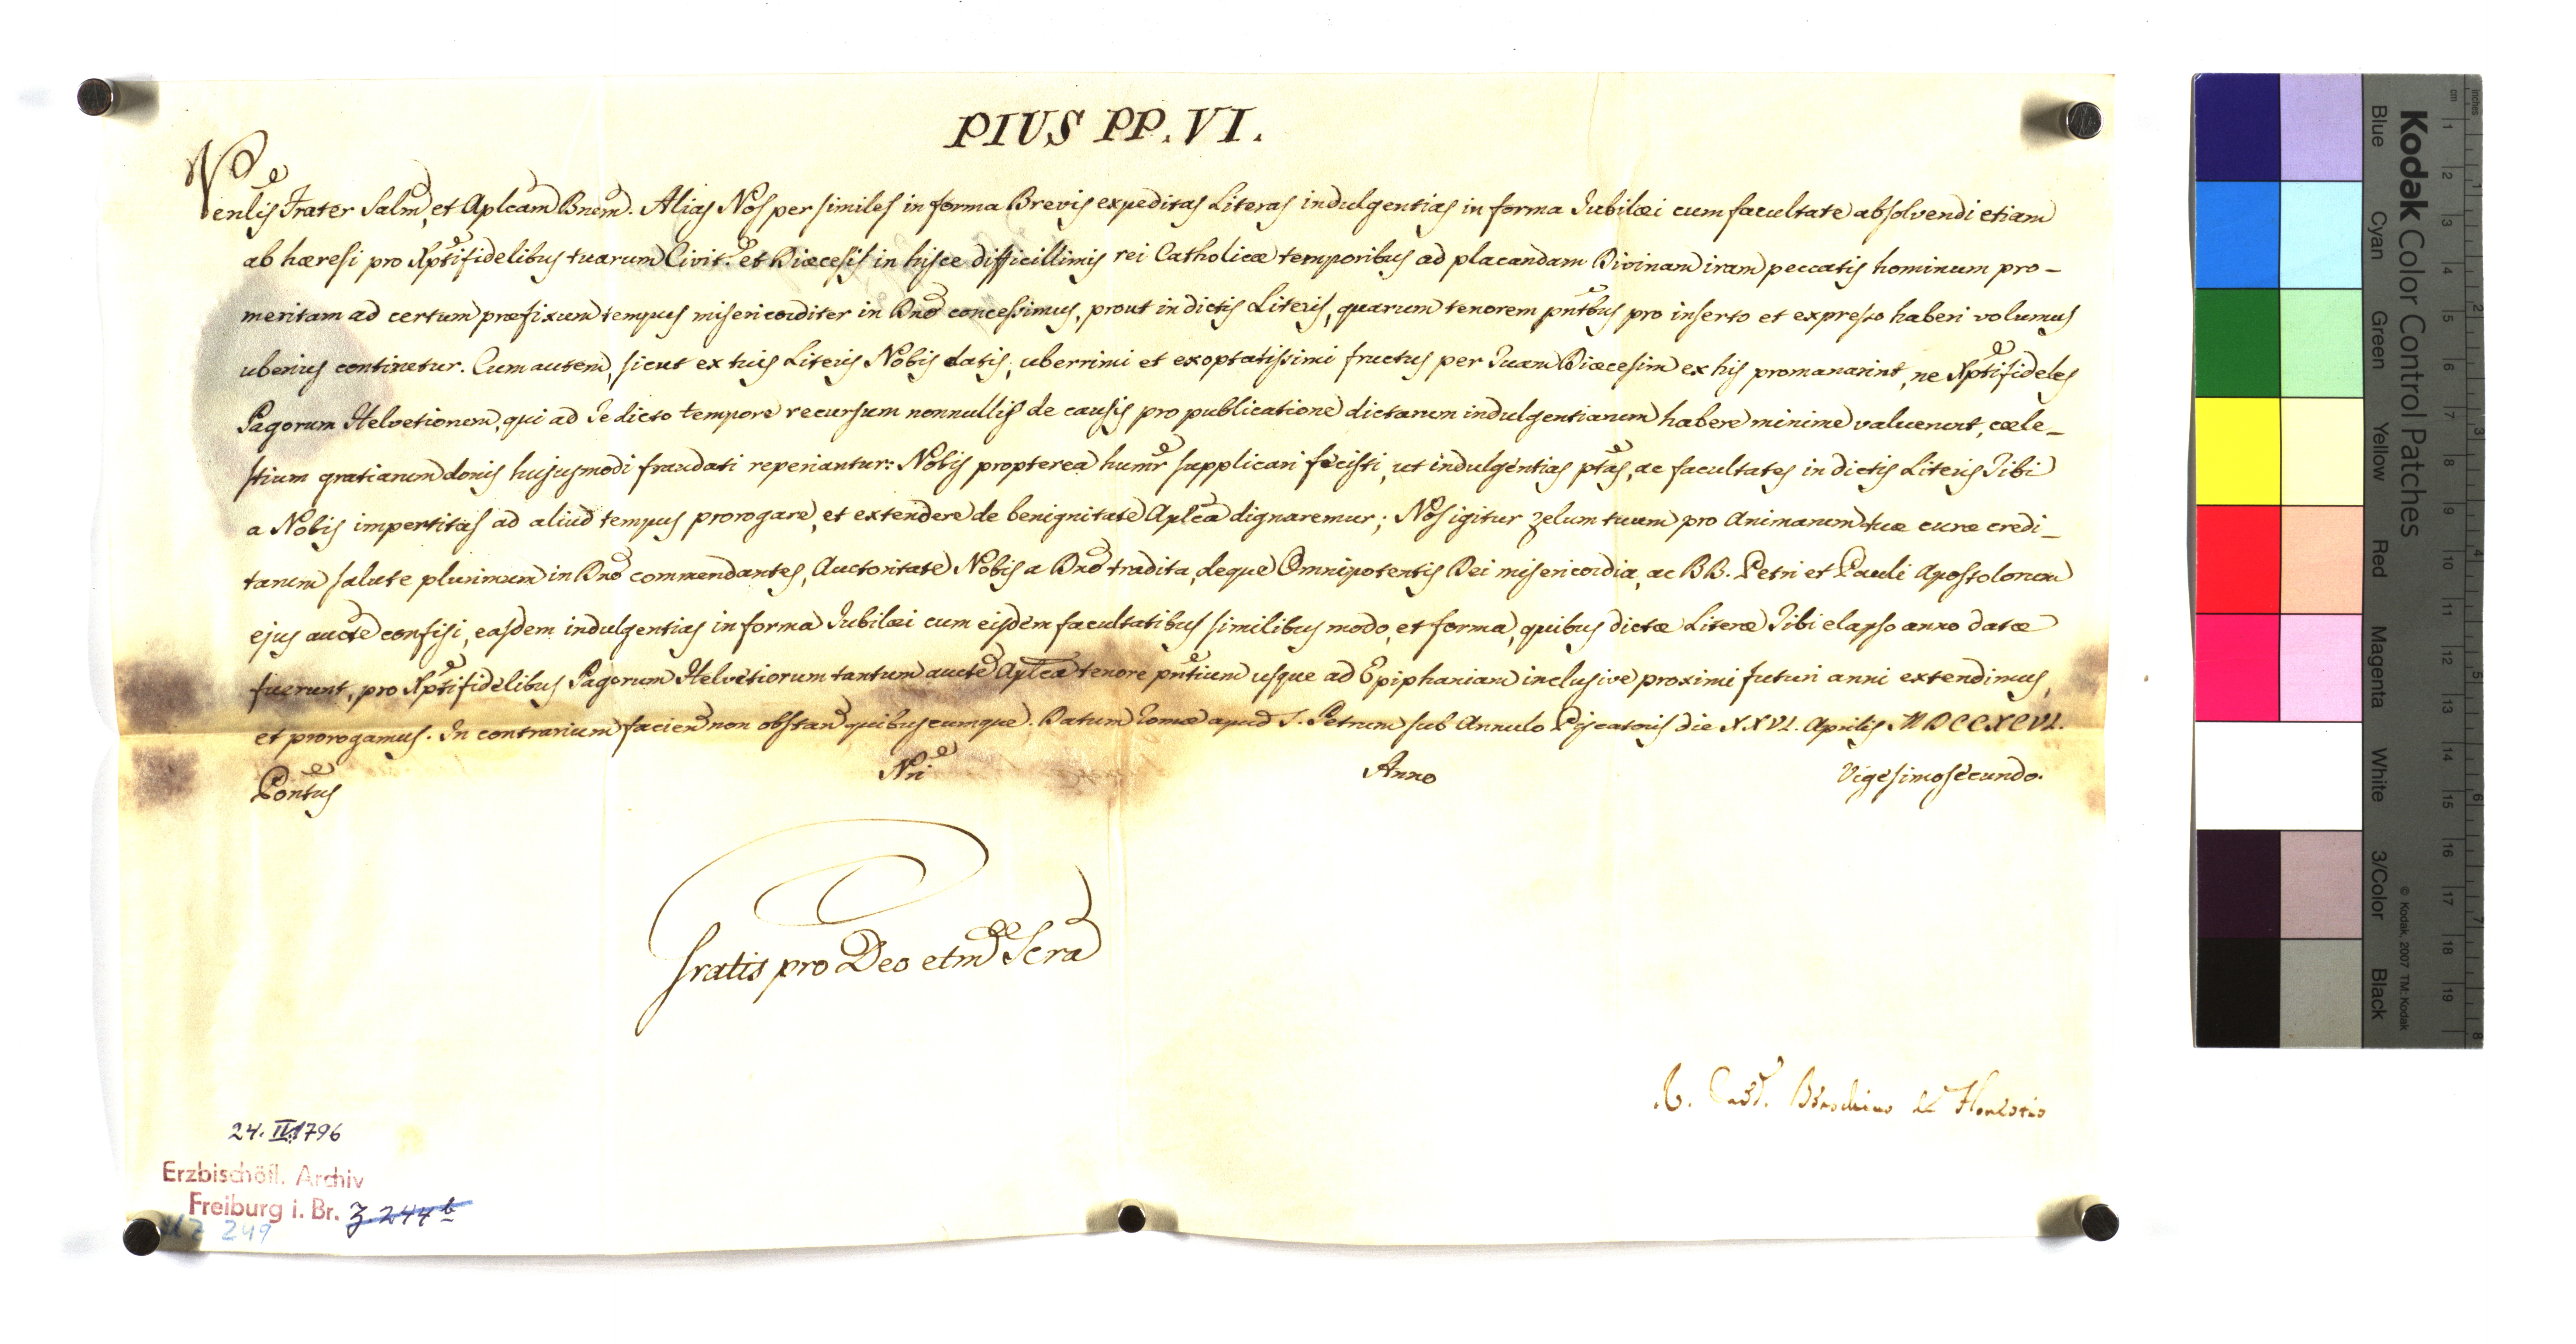 PIUS PP. VI.
Venlis Frater Salm, et Aplcam Bnem. Alias Nos per similes in forma Brevis expeditas Literas indulgentias in forma Jubilæi cum facultate absolvendi etiam
ab hæresi pro Xptifidelibus tuarum Civit. et Diæcesis in hisce difficillimis rei Catholicæ temporibus ad placandam Divinam iram peccatis hominum pro-
meritam ad certum præfixum tempus misericorditer in Dno concessimus, prout in dictis Literis, quarum tenorem pntbus pro inserto et expresso haberi volumus
uberius continetur. Cum autem, sicut ex tuis Literis Nobis datis, uberrimi et exoptatissimi fructus per Tuam Diæcesim ex his promanarint, ne Xptifideles
Pagorum Helvetiorum, qui ad Te dicto tempore recursum nonnullis de causis pro publicatione dictarum indulgentiarum habere minime valuerunt, cæle-
stium gratiarum donis hujusmodi fraudati reperiantur: Nobis propterea humr supplicari fecisti, ut indulgentias ptas, ac facultates in dictis Literis Tibi
a Nobis impertitas ad aliud tempus prorogare, et extendere de benignitate Aplca dignaremur; Nos igitur zelum tuum pro Animarum tuæ curæ credi-
tarum salute plurimum in Dno commendantes, Auctoritate Nobis a Dno tradita, deque Omnipotentis Dei misericordia, ac BB. Petri et Pauli Apostolorum
ejus aucte confisi, easdem indulgentias in forma Jubilæi cum eisdem facultatibus similibus modo, et forma, quibus dictæ Literæ Tibi elapso anno datæ
fuerunt, pro Xptifidelibus Pagorum Helvetiorum tantum aucte Aplca tenore pntium usque ad Epiphaniam inclusive proximi futuri anni extendimus,
et prorogamus. In contrarium facien non obstan quibuscumque. Datum Romæ apud S. Petrum sub Annulo Piscatoris die XXVI. Aprilis MDCCXCVI.
Pontus Nri Anno Vigesimosecundo.
Gratis pro Deo et m Scra
R. Card. Braschius de Honestis
24. IV. 1796
Erzbischöfl. Archiv
Freiburg i. Br. Z 244 b
UZ 249
Kodak Color Control Patches
Blue Cyan Green Yellow Red Magenta White 3/Color Black
© Kodak, 2007 TM: Kodak
cm 1 2 3 4 5 6 7 8 9 10 11 12 13 14 15 16 17 18 19
inches 1 2 3 4 5 6 7 8